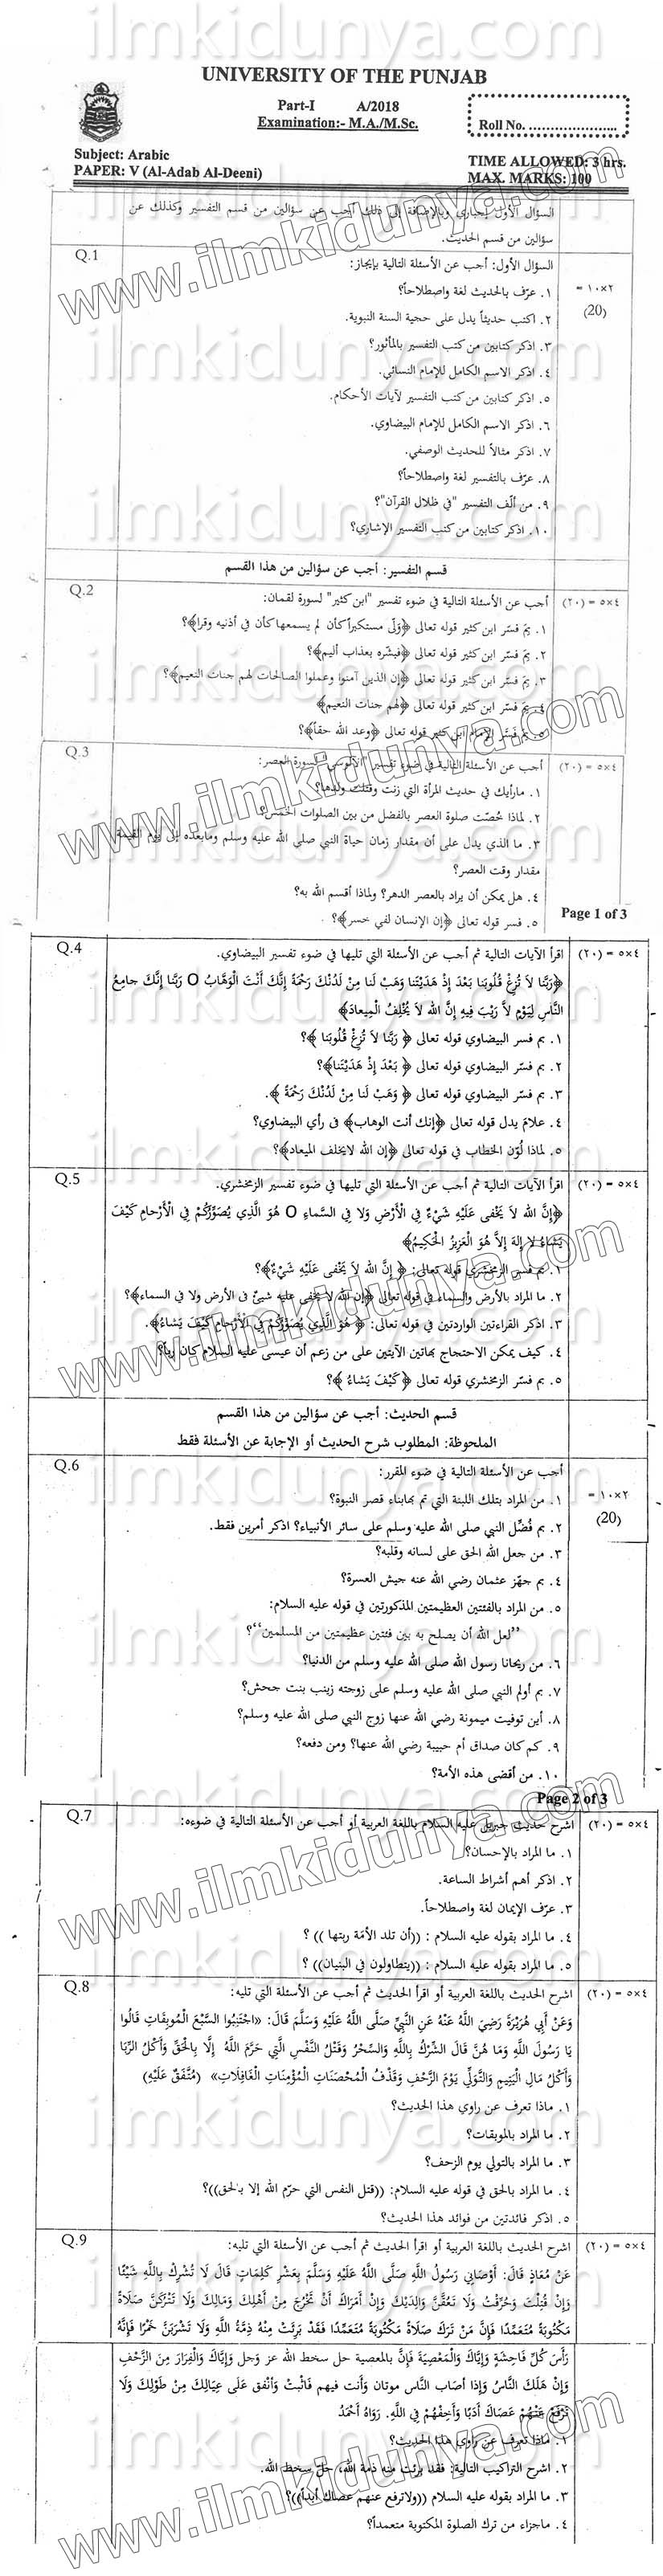 ilmkidunya.com
UNIVERSITY OF THE PUNJAB
Part-I A/2018
Examination:- M.A./M.Sc.
Roll No. ......................
Subject: Arabic
PAPER: V (Al-Adab Al-Deeni)
TIME ALLOWED: 3 hrs.
MAX. MARKS: 100
السؤال الأول إجباري وبالإضافة إلى ذلك أجب عن سؤالين من قسم التفسير وكذلك عن
سؤالين من قسم الحديث.
Q.1
السؤال الأول: أجب عن الأسئلة التالية بإيجاز:
٢×١٠ =
(20)
١. عرّف بالحديث لغة واصطلاحاً؟
٢. اكتب حديثاً يدل على حجية السنة النبوية.
٣. اذكر كتابين من كتب التفسير بالمأثور؟
٤. اذكر الاسم الكامل للإمام النسائي.
٥. اذكر كتابين من كتب التفسير لآيات الأحكام.
٦. اذكر الاسم الكامل للإمام البيضاوي.
٧. اذكر مثالاً للحديث الوصفي.
٨. عرّف بالتفسير لغة واصطلاحاً؟
٩. من ألّف التفسير "في ظلال القرآن"؟
١٠. اذكر كتابين من كتب التفسير الإشاري؟
قسم التفسير: أجب عن سؤالين من هذا القسم
Q.2
أجب عن الأسئلة التالية في ضوء تفسير "ابن كثير" لسورة لقمان:
٤×٥ = (٢٠)
١. بم فسّر ابن كثير قوله تعالى ﴿ولّى مستكبراً كأن لم يسمعها كأن في أذنيه وقرا﴾؟
٢. بم فسّر ابن كثير قوله تعالى ﴿فبشّره بعذاب أليم﴾؟
٣. بم فسّر ابن كثير قوله تعالى ﴿إن الذين آمنوا وعملوا الصالحات لهم جنات النعيم﴾؟
٤. بم فسّر ابن كثير قوله تعالى ﴿لهم جنات النعيم﴾
٥. بم فسّر الإمام ابن كثير قوله تعالى ﴿وعد الله حقاً﴾؟
Q.3
أجب عن الأسئلة التالية في ضوء تفسير "الآلوسي" لسورة العصر:
٤×٥ = (٢٠)
١. مارأيك في حديث المرأة التي زنت وقتلت ولدها؟
٢. لماذا خُصّت صلوة العصر بالفضل من بين الصلوات الخمس؟
٣. ما الذي يدل على أن مقدار زمان حياة النبي صلى الله عليه وسلم ومابعده إلى يوم القيمة
مقدار وقت العصر؟
٤. هل يمكن أن يراد بالعصر الدهر؟ ولماذا أقسم الله به؟
٥. فسر قوله تعالى ﴿إن الإنسان لفي خسر﴾؟
Page 1 of 3
Q.4
اقرأ الآيات التالية ثم أجب عن الأسئلة التي تليها في ضوء تفسير البيضاوي.
٤×٥ = (٢٠)
﴿رَبَّنَا لاَ تُزِغْ قُلُوبَنَا بَعْدَ إِذْ هَدَيْتَنَا وَهَبْ لَنا مِنْ لَدُنْكَ رَحْمَةً إِنَّكَ أَنْتَ الْوَهَّابُ O رَبَّنا إِنَّكَ جامِعُ
النَّاسِ لِيَوْمٍ لاَّ رَيْبَ فِيهِ إِنَّ الله لاَ يُخْلِفُ الْمِيعادَ﴾
١. بم فسر البيضاوي قوله تعالى ﴿ رَبَّنا لاَ تُزِغْ قُلُوبَنا ﴾؟
٢. بم فسّر البيضاوي قوله تعالى ﴿ بَعْدَ إِذْ هَدَيْتَنا﴾؟
٣. بم فسّر البيضاوي قوله تعالى ﴿ وَهَبْ لَنا مِنْ لَدُنْكَ رَحْمَةً ﴾.
٤. علامَ يدل قوله تعالى ﴿إنك أنت الوهاب﴾ فى رأي البيضاوي؟
٥. لماذا لُوّن الخطاب في قوله تعالى ﴿إن الله لايخلف الميعاد﴾؟
Q.5
اقرأ الآيات التالية ثم أجب عن الأسئلة التي تليها في ضوء تفسير الزمخشري.
٤×٥ = (٢٠)
﴿إِنَّ الله لاَ يَخْفى عَلَيْهِ شَيْءٌ فِي الْأَرْضِ وَلا فِي السَّماءِ O هُوَ الَّذِي يُصَوِّرُكُمْ فِي الْأَرْحامِ كَيْفَ
يَشاءُ لا إِلهَ إِلاَّ هُوَ الْعَزِيزُ الْحَكِيمُ﴾
١. بم فسّر الزمخشري قوله تعالى: ﴿ إِنَّ الله لاَ يَخْفى عَلَيْهِ شَيْءٌ﴾؟
٢. ما المراد بالأرض والسماء في قوله تعالى ﴿إن الله لا يخفى عليه شيئ فى الأرض ولا في السماء﴾؟
٣. اذكر القراءتين الواردتين في قوله تعالى: ﴿ هُوَ الَّذِي يُصَوِّرُكُمْ فِي الْأَرْحامِ كَيْفَ يَشاءُ﴾.
٤. كيف يمكن الاحتجاج بهاتين الآيتين على من زعم أن عيسى عليه السلام كان رباً؟
٥. بم فسّر الزمخشري قوله تعالى ﴿كَيْفَ يَشاءُ ﴾؟
قسم الحديث: أجب عن سؤالين من هذا القسم
الملحوظة: المطلوب شرح الحديث أو الإجابة عن الأسئلة فقط
Q.6
أجب عن الأسئلة التالية في ضوء المقرر:
٢×١٠ =
(20)
١. من المراد بتلك اللبنة التي تم بهابناء قصر النبوة؟
٢. بم فُضِّل النبي صلى الله عليه وسلم على سائر الأنبياء؟ اذكر أمرين فقط.
٣. من جعل الله الحق على لسانه وقلبه؟
٤. بم جهّز عثمان رضي الله عنه جيش العسرة؟
٥. من المراد بالفئتين العظيمتين المذكورتين في قوله عليه السلام:
”لعل الله أن يصلح به بين فئتين عظيمتين من المسلمين“؟
٦. من ريحانا رسول الله صلى الله عليه وسلم من الدنيا؟
٧. بم أولم النبي صلى الله عليه وسلم على زوجته زينب بنت جحش؟
٨. أين توفيت ميمونة رضي الله عنها زوج النبي صلى الله عليه وسلم؟
٩. كم كان صداق أم حبيبة رضي الله عنها؟ ومن دفعه؟
١٠. من أقضى هذه الأمة؟
Page 2 of 3
Q.7
اشرح حديث جبريل عليه السلام باللغة العربية أو أجب عن الأسئلة التالية في ضوءه:
٤×٥ = (٢٠)
١. ما المراد بالإحسان؟
٢. اذكر أهم أشراط الساعة.
٣. عرّف الإيمان لغة واصطلاحاً.
٤. ما المراد بقوله عليه السلام : ((أن تلد الأمَة ربتها )) ؟
٥. ما المراد بقوله عليه السلام : ((يتطاولون في البنيان)) ؟
Q.8
اشرح الحديث باللغة العربية أو اقرأ الحديث ثم أجب عن الأسئلة التي تليه:
٤×٥ = (٢٠)
وَعَنْ أَبِي هُرَيْرَةَ رَضِيَ اللَّهُ عَنْهُ عَنِ النَّبِيِّ صَلَّى اللَّهُ عَلَيْهِ وَسَلَّمَ قَالَ: «اجْتَنِبُوا السَّبْعَ الْمُوبِقَاتِ قَالُوا
يَا رَسُولَ اللَّهِ وَمَا هُنَّ قَالَ الشِّرْكُ بِاللَّهِ وَالسِّحْرُ وَقَتْلُ النَّفْسِ الَّتِي حَرَّمَ اللَّهُ إِلَّا بِالْحَقِّ وَأَكْلُ الرِّبَا
وَأَكْلُ مَالِ الْيَتِيمِ وَالتَّوَلِّي يَوْمَ الزَّحْفِ وَقَذْفُ الْمُحْصَنَاتِ الْمُؤْمِنَاتِ الْغَافِلَاتِ» (مُتَّفَقٌ عَلَيْهِ)
١. ماذا تعرف عن راوي هذا الحديث؟
٢. ما المراد بالموبقات؟
٣. ما المراد بالتولي يوم الزحف؟
٤. ما المراد بالحق في قوله عليه السلام: ((قتل النفس التي حرّم الله إلا بالحق))؟
٥. اذكر فائدتين من فوائد هذا الحديث؟
Q.9
اشرح الحديث باللغة العربية أو اقرأ الحديث ثم أجب عن الأسئلة التي تليه:
٤×٥ = (٢٠)
عَنْ مُعَاذٍ قَالَ: أَوْصَانِي رَسُولُ اللَّهِ صَلَّى اللَّهُ عَلَيْهِ وَسَلَّمَ بِعَشْرِ كَلِمَاتٍ قَالَ لَا تُشْرِكْ بِاللَّهِ شَيْئًا
وَإِنْ قُتِلْتَ وَحُرِّقْتَ وَلَا تَعُقَّنَّ وَالِدَيْكَ وَإِنْ أَمَرَاكَ أَنْ تَخْرُجَ مِنْ أَهْلِكَ وَمَالِكَ وَلَا تَتْرُكَنَّ صَلَاةً
مَكْتُوبَةً مُتَعَمِّدًا فَإِنَّ مَنْ تَرَكَ صَلَاةً مَكْتُوبَةً مُتَعَمِّدًا فَقَدْ بَرِئَتْ مِنْهُ ذِمَّةُ اللَّهِ وَلَا تَشْرَبَنَّ خَمْرًا فَإِنَّهُ
رَأْسُ كُلِّ فَاحِشَةٍ وَإِيَّاكَ وَالْمَعْصِيَةَ فَإِنَّ بالمعصية حل سخط الله عز وَجل وَإِيَّاكَ وَالْفِرَارَ مِنَ الزَّحْفِ
وَإِنْ هَلَكَ النَّاسُ وَإِذا أصَابَ النَّاس موتان وَأَنت فيهم فَاثْبتْ وَأنْفق عَلَى عِيَالِكَ مِنْ طَوْلِكَ وَلَا
تَرْفَعْ عَنْهُمْ عَصَاكَ أَدَبًا وَأَخِفْهُمْ فِي اللَّهِ. رَوَاهُ أَحْمَدُ
١. ماذا تعرف عن راوي هذا الحديث؟
٢. اشرح التراكيب التالية: فقد برئت منه ذمة الله، حلّ سخط الله.
٣. ما المراد بقوله عليه السلام ((ولاترفع عنهم عصاك أبداً))؟
٤. ماجزاء من ترك الصلوة المكتوبة متعمداً؟
www.ilmkidunya.com